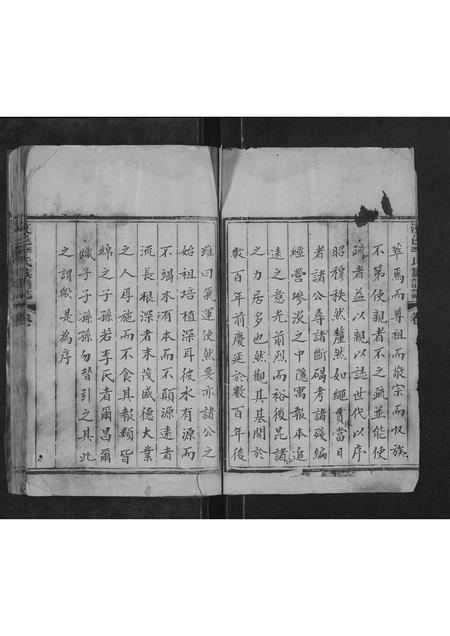 萃焉而尊祖而敬宗而收族
不第使親者不之疏並能使
疏者益以親以誌世代以序
昭穆秩然釐然如繩貫當日
者諸公尋諸斷碣考諸殘編
經營慘淡之中隱寓報本追
遠之意光前烈而裕後昆諸
之力居多也然觀其基開於
數百年前慶延於數百年後
雖曰氣運使然要亦諸公之
始祖培植深耳彼水有源而
不竭木有本而不顛源遠者
流長根深者末茂盛德大業
之人厚施而不食其報類皆
綿之子孫若李氏者爾昌爾
熾子子孫孫勿替引之其此
之謂歟是為序